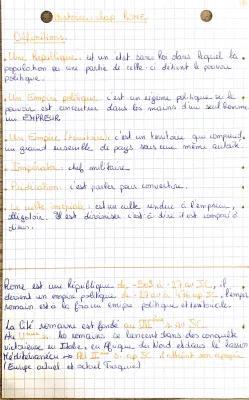 Histoire: chap ROME
Définitions:
. Une République: est un état sans Roi dans lequel la
population ou une partie de celle-ci détient le pouvoir
politique.
. Un Empire politique: c'est un régime politique ou le
pouvoir est concentrer dans les mains d'un seul homme
un EMPREUR.
. Un Empire Térritoriale: c'est un territoire qui comprend
un grand ensemble de pays sous une même autorité.
. Impérator: chef militaire
. Prédication: c'est parler pour convertire.
. Le culte impérial: est un culte rendue à l'empreur,
obligatoire. Il est diviniser c'est-à-dire il est comparé à
dieu.
Rome est une République de -509 à -27 av JC, il
devient un empire politique de -27 av à 476 ap JC, l'empire
romain est à la fois un empire politique et territoriale.
La cité romaine est fondé au VIIIème s. av JC.
Au Vème s. les romains se lancent dans des conquête
victorieuse en Italie, en Afrique du Nord et dans le bassin
Méditerranéen → Au IIème s. ap JC il atteint son apogée
(Europe actuel et actuel Turquie)